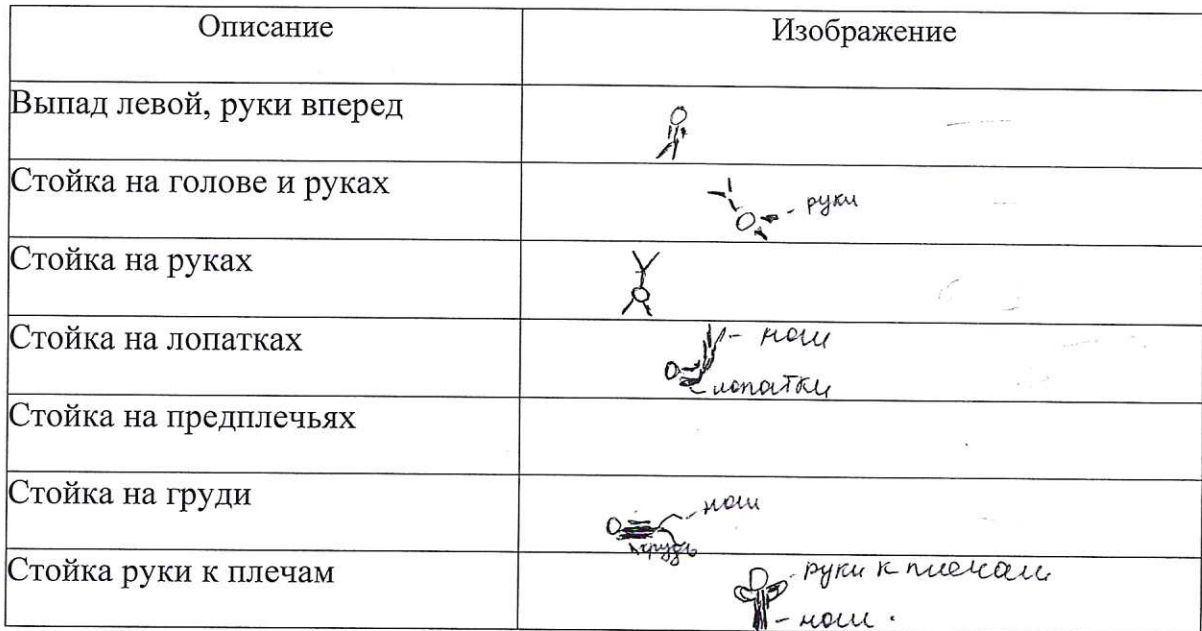 Описание
Изображение
Выпад левой, руки вперед
Стойка на голове и руках
- руки
Стойка на руках
Стойка на лопатках
- ноги
- лопатки
Стойка на предплечьях
Стойка на груди
- ноги
грудь
Стойка руки к плечам
- руки к плечам
- ноги.